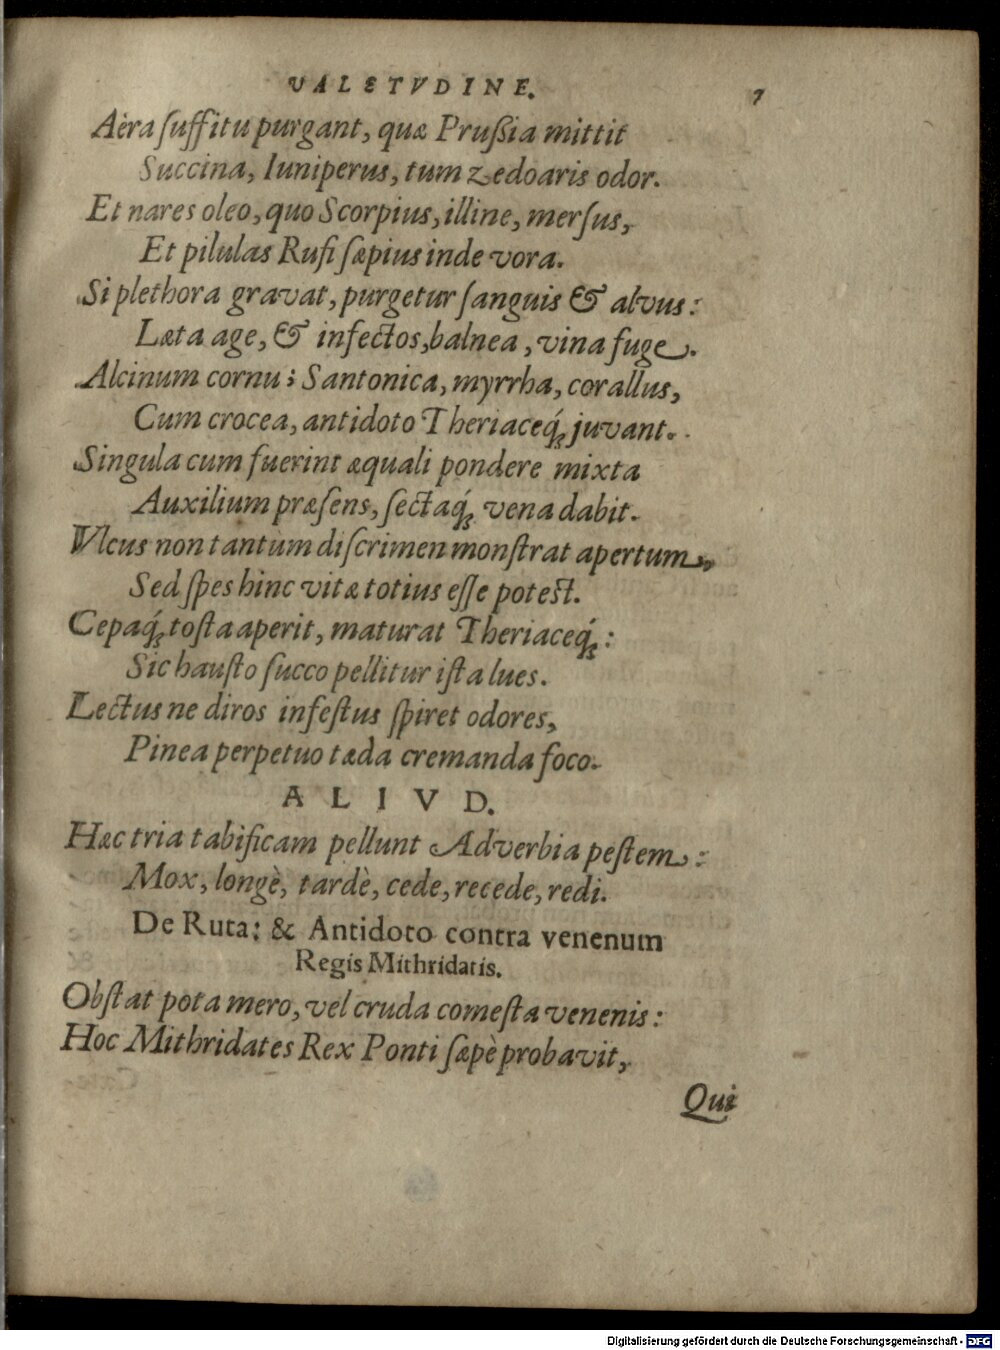 VALETVDINE. 7
Aëra ſuffitu purgant, quæ Prußia mittit
Succina, Iuniperus, tum zedoaris odor.
Et nares oleo, quo Scorpius, illine, merſus,
Et pilulas Rufi ſæpius inde vora.
Si plethora gravat, purgetur ſanguis & alvus:
Læta age, & infectos, balnea, vina fuge.
Alcinum cornu; Santonica, myrrha, corallus,
Cum crocea, antidoto Theriaceq́; juvant.
Singula cum fuerint æquali pondere mixta
Auxilium præſens, ſectaq́; vena dabit.
Vlcus non tantum diſcrimen monſtrat apertum,
Sed ſpes hinc vitæ totius eſſe poteſt.
Cepaq́; toſta aperit, maturat Theriaceq́;:
Sic hauſto ſucco pellitur iſta lues.
Lectus ne diros infeſtus ſpiret odores,
Pinea perpetuo tæda cremanda foco.
ALIVD.
Hæc tria tabificam pellunt Adverbia peſtem:
Mox, longè, tardè, cede, recede, redi.
De Ruta: & Antidoto contra venenum
Regis Mithridatis.
Obſtat pota mero, vel cruda comeſta venenis:
Hoc Mithridates Rex Ponti ſæpè probavit,
Qui
Digitalisierung gefördert durch die Deutsche Forschungsgemeinschaft - DFG